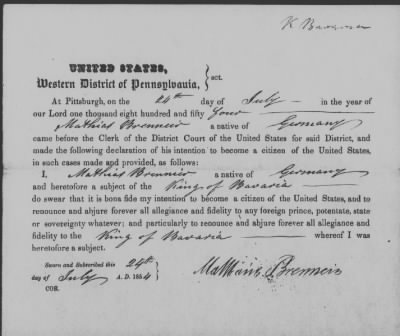 K Bavaria
UNITED STATES,
Western District of Pennsylvania, } sct.
At Pittsburgh, on the 24th day of July in the year of
our Lord one thousand eight hundred and fifty four
Mathias Brenneis a native of Germany
came before the Clerk of the District Court of the United States for said District, and
made the following declaration of his intention to become a citizen of the United States,
in such cases made and provided, as follows:
I, Mathias Brenneis a native of Germany
and heretofore a subject of the King of Bavaria
do swear that it is bona fide my intention to become a citizen of the United States, and to
renounce and abjure forever all allegiance and fidelity to any foreign prince, potentate, state
or sovereignty whatever; and particularly to renounce and abjure forever all allegiance and
fidelity to the King of Bavaria whereof I was
heretofore a subject.
Sworn and Subscribed this 24th
day of July A. D. 1854
COR.
Mathias Brenneis